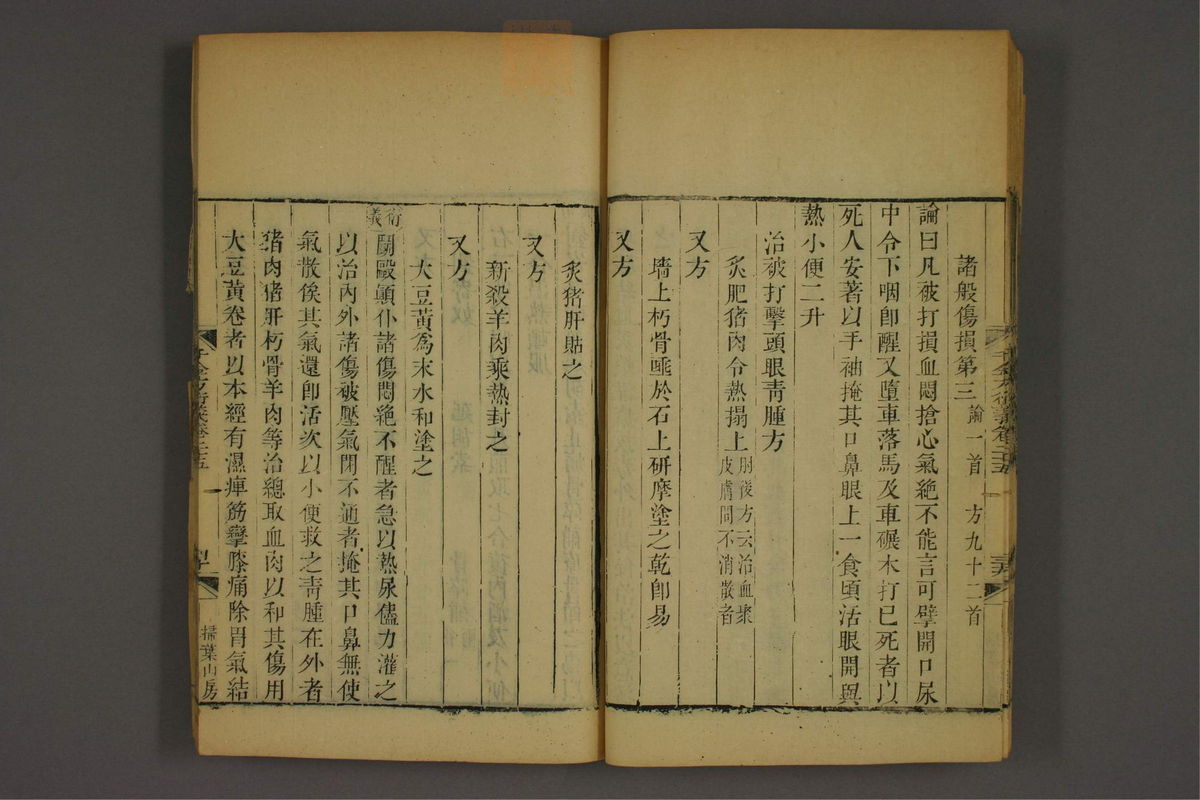 諸般傷損第三 論一首 方九十二首
論曰凡被打損血悶搶心氣絶不能言可擘開口尿
中令下咽卽醒又墮車落馬及車碾木打已死者以
死人安著以手袖掩其口鼻眼上一食頃活眼開與
熱小便二升
治被打擊頭眼青腫方
炙肥猪肉令熱搨上 肘後方云治血聚皮膚間不消散者
又方
墻上朽骨唾於石上研摩塗之乾卽易
又方
炙猪肝貼之
又方
新殺羊肉乘熱封之
又方
大豆黃爲末水和塗之
衍義
鬬毆顚仆諸傷悶絶不醒者急以熱尿儘力灌之
以治內外諸傷被壓氣閉不通者掩其口鼻無使
氣散俟其氣還卽活次以小便救之靑腫在外者
猪肉猪肝朽骨羊肉等治總取血肉以和其傷用
大豆黃卷者以本經有濕痺筋攣膝痛除胃氣結
掃葉山房